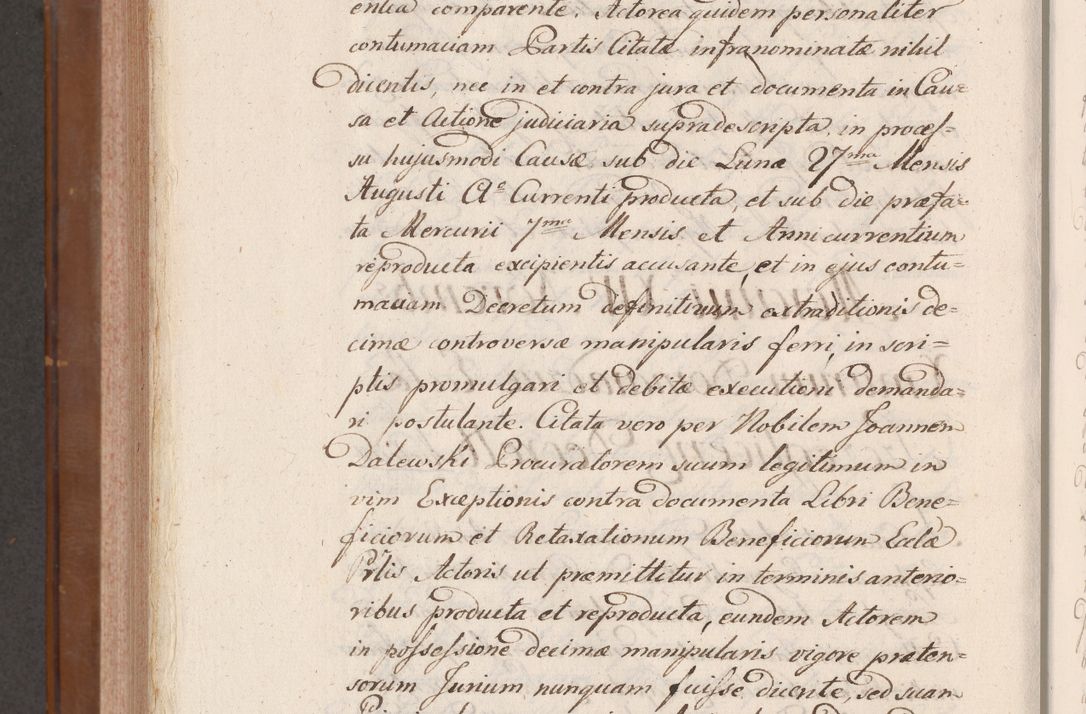 entia comparente. Actorea quidem personaliter
contumaciam Partis Citatæ infranominatæ nihil
dicentis, nec in et contra jura et documenta in Cau=
sa et Actione judiciaria supradescripta in procef=
su hujusmodi Causæ sub die Lunæ 27ma Mensis
Augusti Ae Currenti producta, et sub die præfa=
ta Mercurii 7ma Mensis et Anni currentium
reproducta excipientis accusante, et in ejus contu=
maciam Decretum definitivum extraditionis de=
cimæ controversæ manipularis ferri, in scri=
ptis promulgari et debitæ executioni demanda=
ri postulante. Citata vero per Nobilem Joannem
Dalewski Procuratorem suum legitimum in
vim Exceptionis contra documenta Libri Bene=
ficiorum et Retaxationum Beneficiorum Ecclæ
Prtis Actoris ut præmittitur in terminis anterio=
ribus producta et reproducta, eundem Actorem
in pofsefsione decimæ manipularis vigore præten=
sorum Jurium nunquam fuifse dicente, sed suam